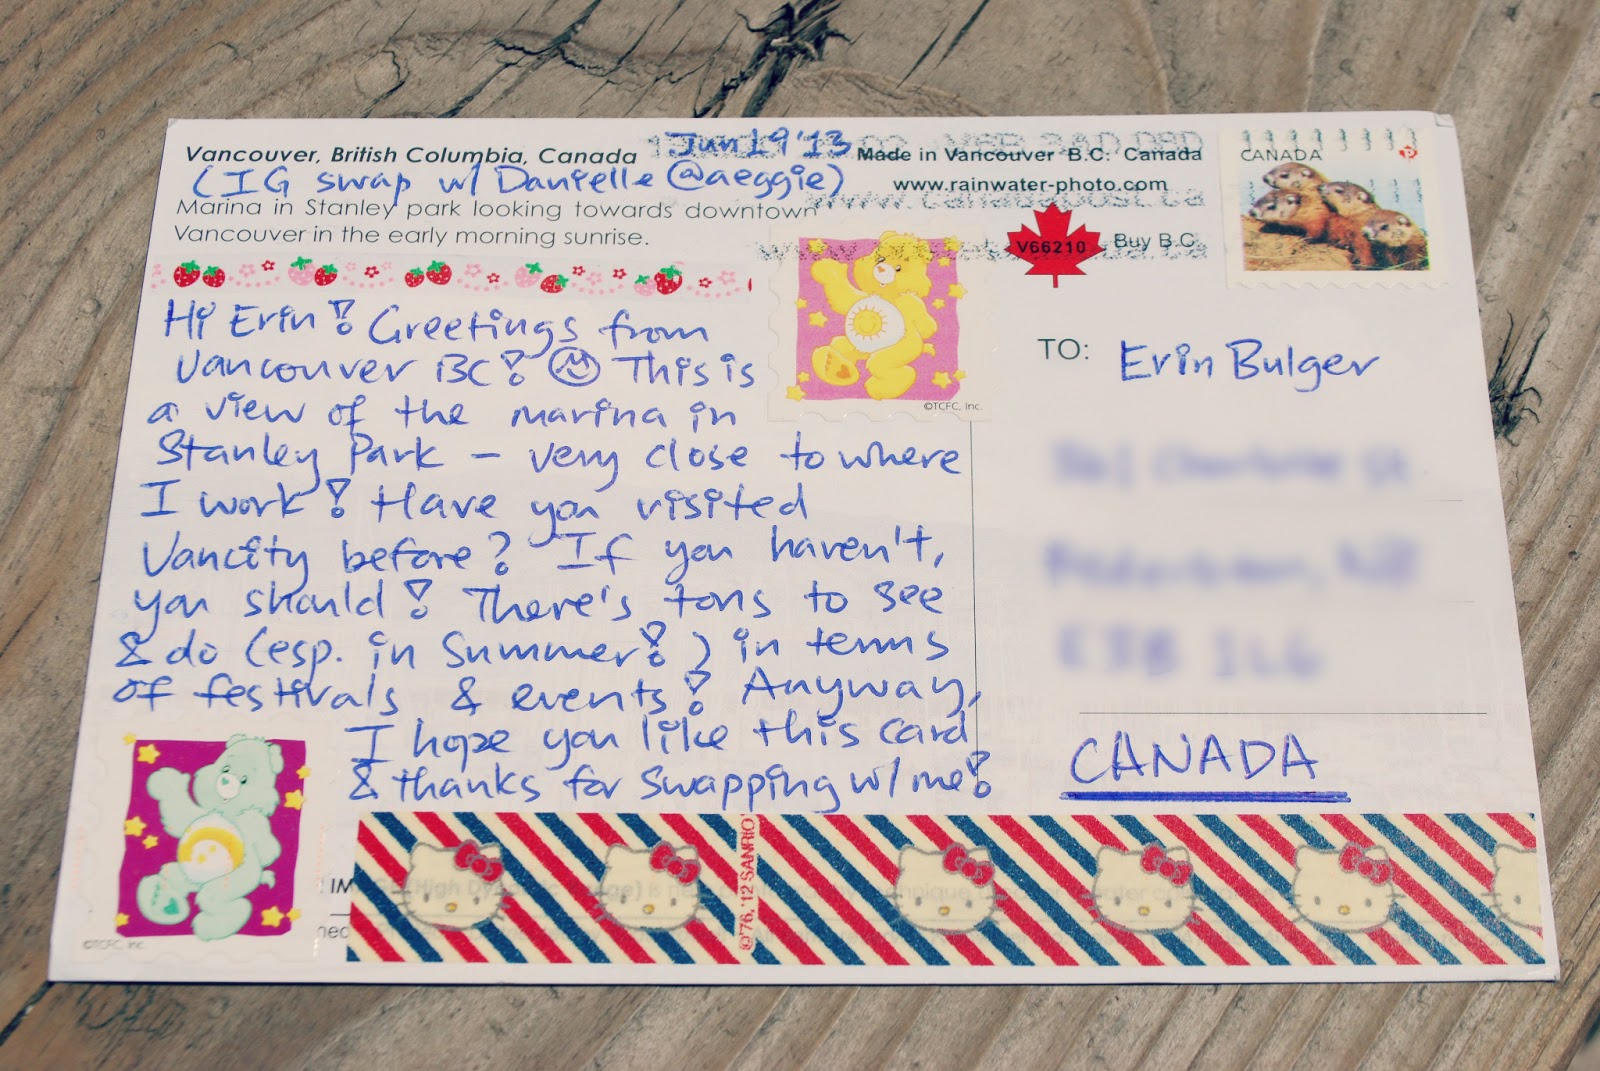 Vancouver, British Columbia, Canada
Jun 19 '13
(IG swap w/ Danielle @aeggie)
Marina in Stanley park looking towards downtown
Vancouver in the early morning sunrise.
Made in Vancouver B.C. Canada
www.rainwater-photo.com
www.canadapost.ca
V66210
Buy B.C.
CANADA
P
Hi Erin! Greetings from
Vancouver BC! This is
a view of the marina in
Stanley Park - very close to where
I work! Have you visited
Vancity before? If you haven't,
you should! There's tons to see
& do (esp. in Summer!) in terms
of festivals & events! Anyway,
I hope you like this card
& thanks for swapping w/ me!
©TCFC, Inc.
TO: Erin Bulger
CANADA
©TCFC, Inc.
©'76, '12 SANRIO
(High Dynamic